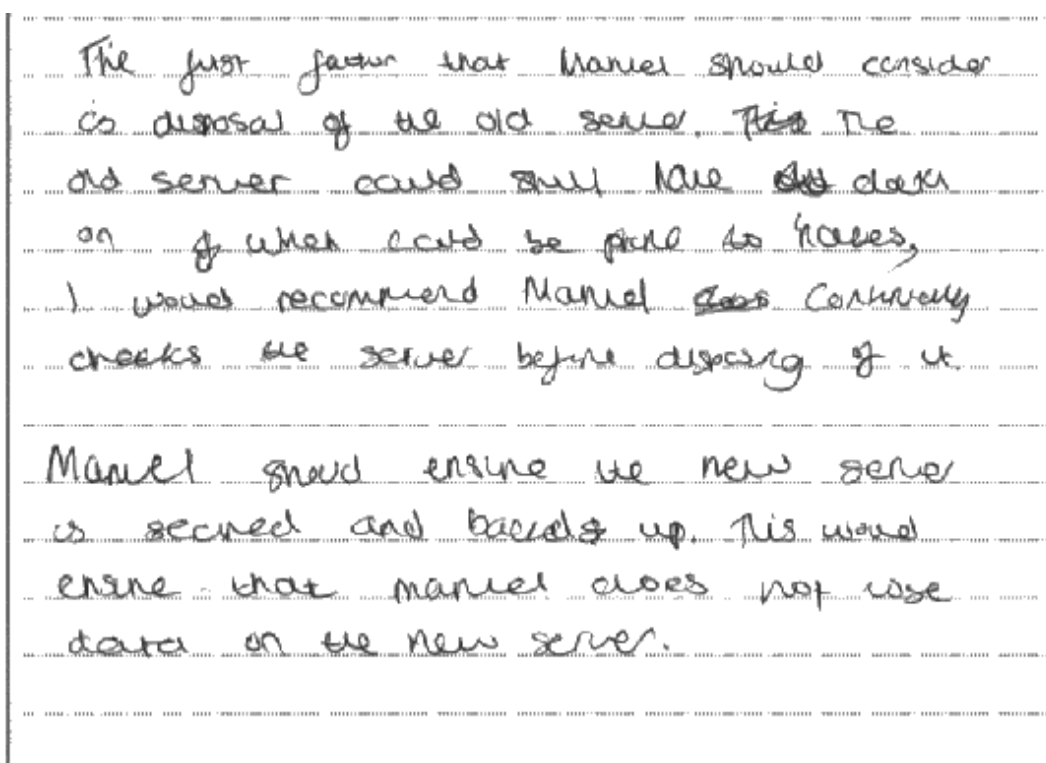 The first factor that Manuel should consider
is disposal of the old server. This The
old server could still have data
on if which could be prone to hackers,
I would recommend Manuel does continually
checks the server before disposing of it.
Manuel should ensure the new server
is secured and backeds up. This would
ensure that manuel does not lose
data on the new server.